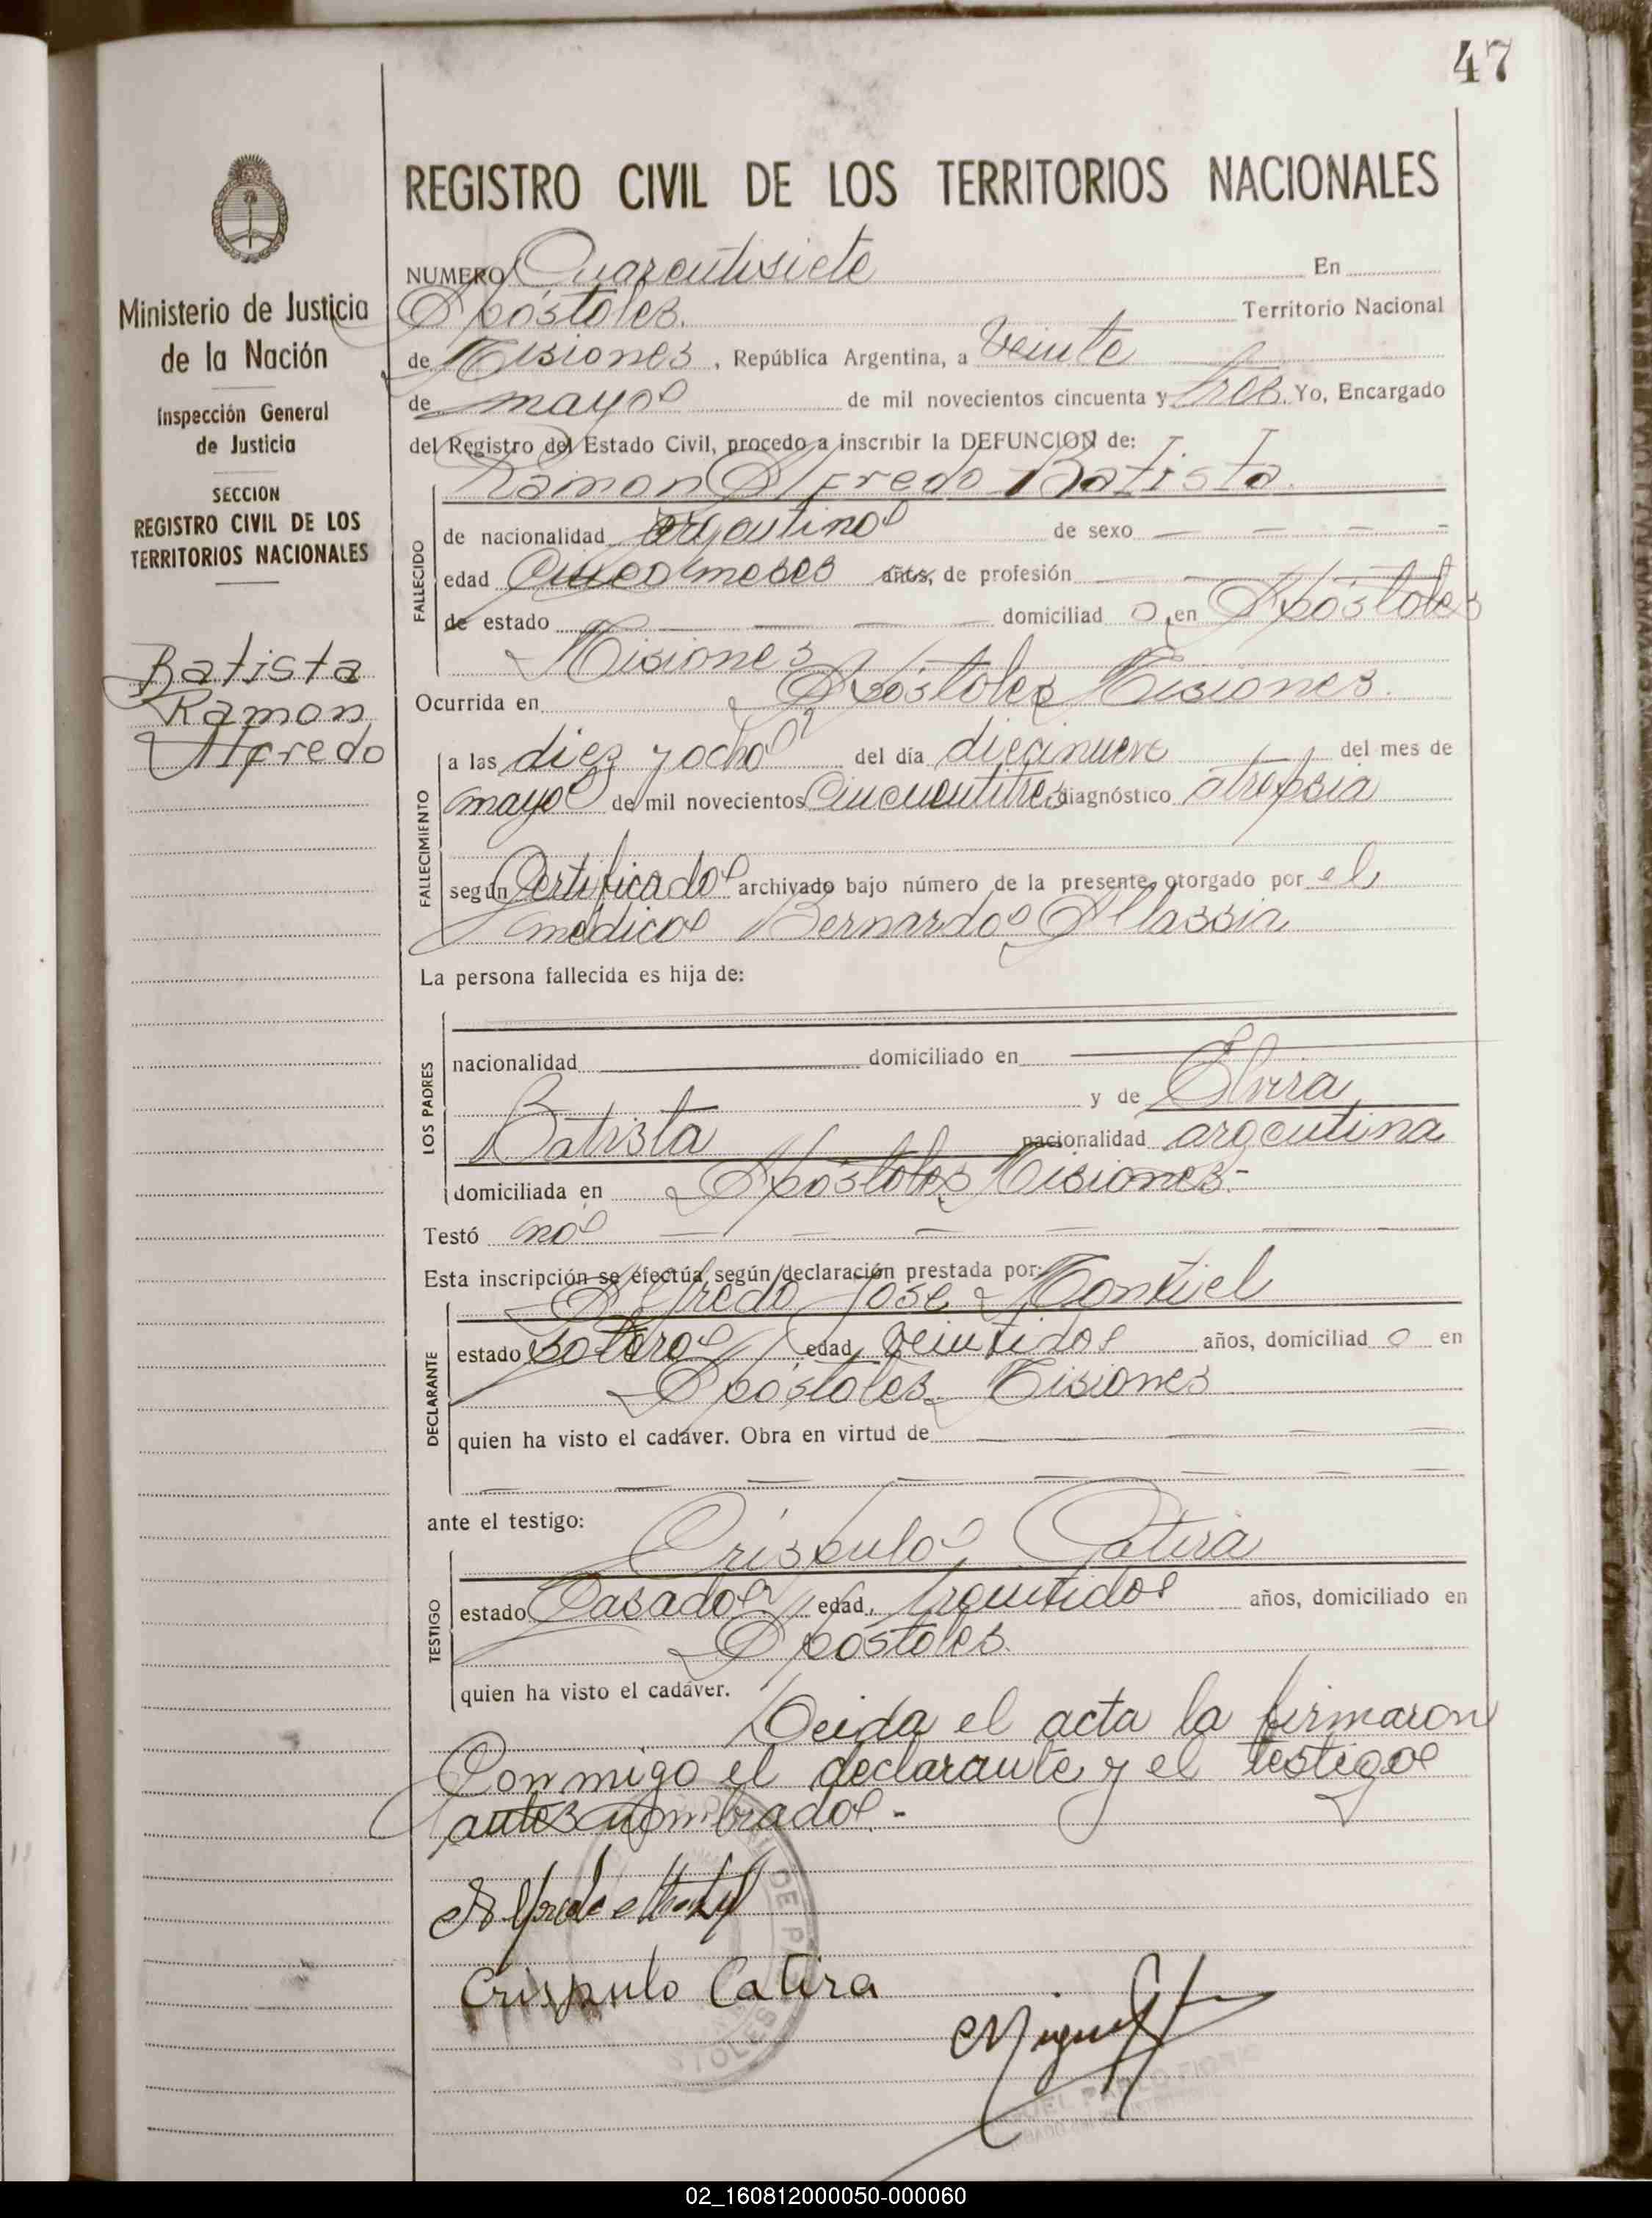 47
REGISTRO CIVIL DE LOS TERRITORIOS NACIONALES
Ministerio de Justicia
de la Nación
Inspección General
de Justicia
SECCION
REGISTRO CIVIL DE LOS
TERRITORIOS NACIONALES
Batista
Ramon
Alfredo
NUMERO Cuarentisiete En
Apóstoles. Territorio Nacional
de Misiones, República Argentina, a veinte
de mayo de mil novecientos cincuenta y tres. Yo, Encargado
del Registro del Estado Civil, procedo a inscribir la DEFUNCION de:
Ramon Alfredo Batista
FALLECIDO
de nacionalidad argentino de sexo — — — —
edad Cinco meses años, de profesión —
de estado — — — — domiciliado en Apóstoles
Misiones
Ocurrida en Apóstoles Misiones.
FALLECIMIENTO
a las diez y ocho del día diecinueve del mes de
mayo de mil novecientos Cincuentitres diagnóstico atrepsia
según Certificado archivado bajo número de la presente, otorgado por el
médico Bernardo Allassia
La persona fallecida es hija de:
LOS PADRES
nacionalidad domiciliado en
y de Elvira
Batista nacionalidad argentina
domiciliada en Apóstoles Misiones.-
Testó no — — — — —
Esta inscripción se efectúa según declaración prestada por:
Alfredo José Montiel
DECLARANTE
estado soltero edad veintidos años, domiciliado en
Apóstoles Misiones
quien ha visto el cadáver. Obra en virtud de — — — —
ante el testigo:
Críspulo Catira
TESTIGO
estado Casado edad, treintidos años, domiciliado en
Apóstoles.
quien ha visto el cadáver. Leida el acta la firmaron
Conmigo el declarante y el testigo
antes nombrado.-
Crispulo Catira
Miguel
02_160812000050-000060